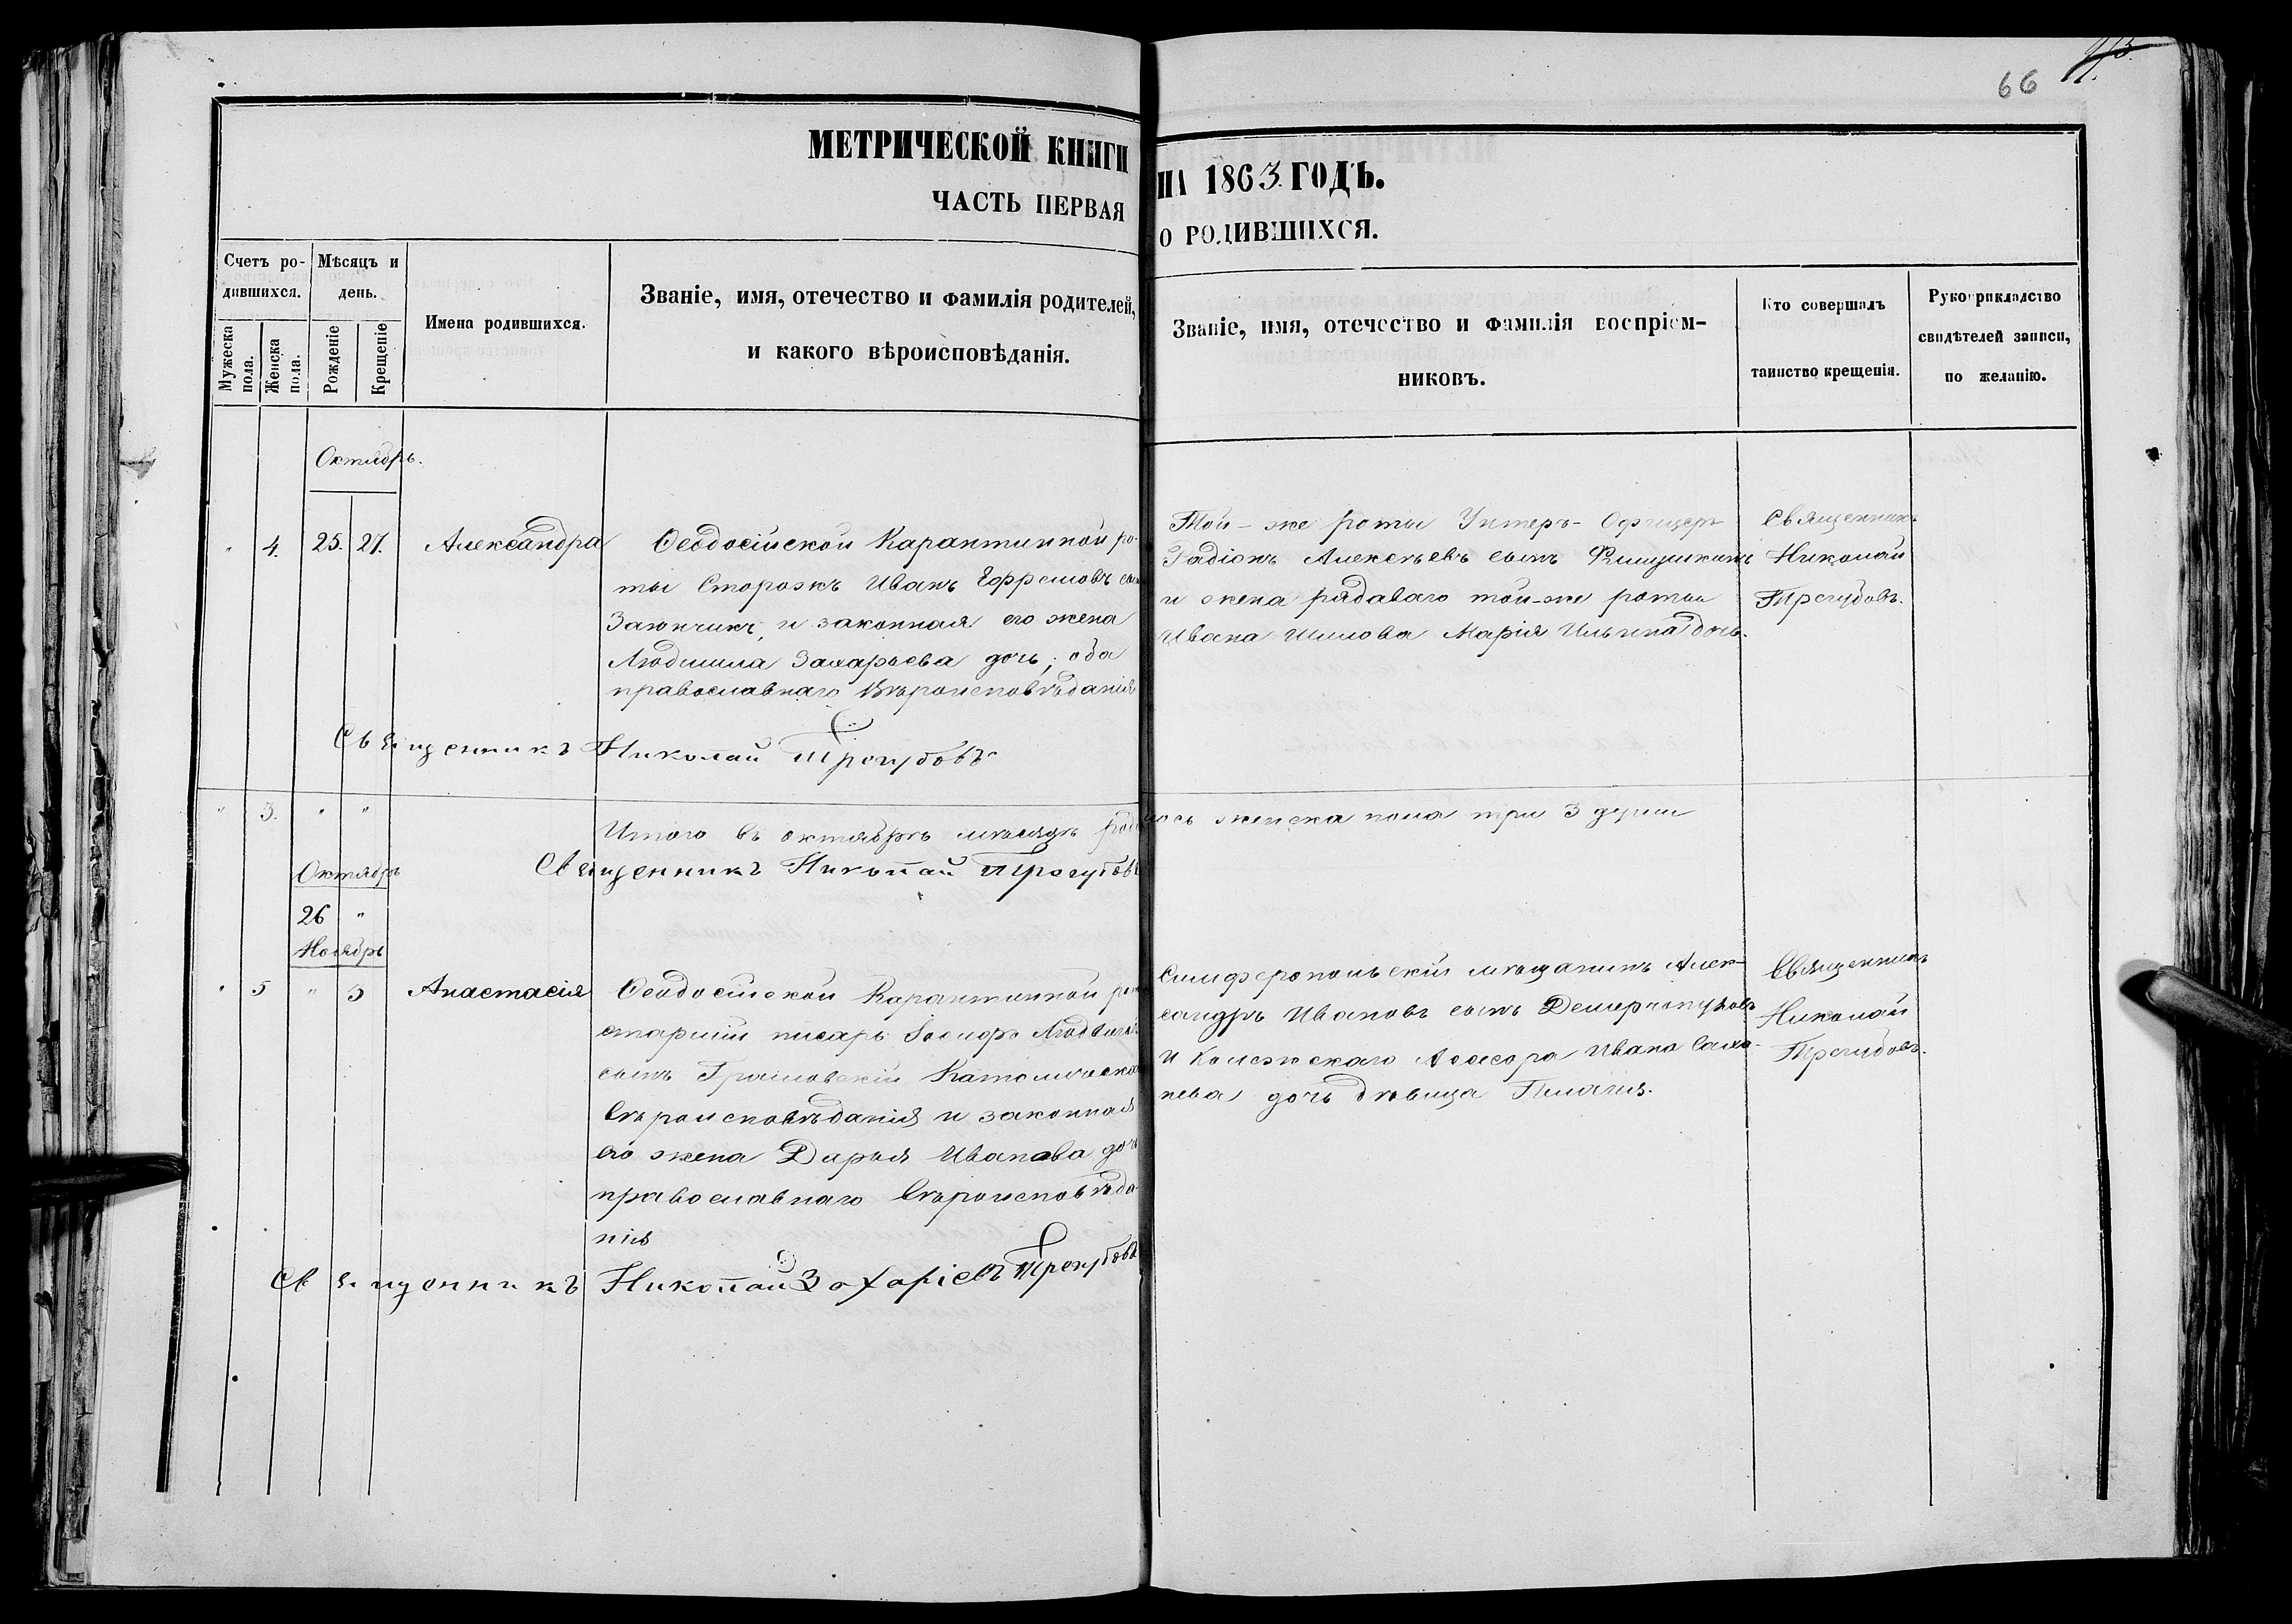 66
МЕТРИЧЕСКОЙ КНИГИ НА 1863 ГОДЪ.
ЧАСТЬ ПЕРВАЯ О РОДИВШИХСЯ.
Счетъ ро-
дившихся.
Мужеска пола.
Женска пола.
Мѣсяцъ и
день.
Рожденіе
Крещеніе
Имена родившихся.
Званіе, имя, отечество и фамилія родителей,
и какого вѣроисповѣданія.
Званіе, имя, отечество и фамилія воспріем-
никовъ.
Кто совершалъ
таинство крещенія.
Рукоприкладство
свидѣтелей записи,
по желанію.
Октябрь.
" 4. 25. 27. Александра
Ѳеодосійской Карантинной ро-
ты Сторожъ Иванъ Ефремовъ сынъ
Заюнчикъ, и законная его жена
Людмила Захарьева дочь; оба
православнаго Вѣроисповѣданія
Той-же роты Унтеръ-Офицеръ
Радіонъ Алексѣевъ сынъ
и жена рядоваго той-же роты
Ивана Шилова Марія Ильина дочь.
Священникъ
Николай
Трегубовъ.
Священникъ Николай Трегубовъ
" 3. " "
Итого въ октябрѣ мѣсяцѣ родилось женска пола три 3 души
Священникъ Николай Трегубовъ
Октябрь
26 "
Ноябрь
" 5 " 3 Анастасія
Ѳеодосійской Карантинной ро
старшій писарь Іосифъ Людвиго
сынъ Грамовскій Католическа
Вѣроисповѣданія и законная
его жена Дарья Иванова доч
православнаго Вѣроисповѣда-
нія
Симферопольскій мѣщанинъ Алек-
сандръ Ивановъ сынъ
и Колежскаго Асесора Ивана
нева дочь дѣвица Пилагія.
Священникъ
Николай
Трегубовъ.
Священникъ Николай Захаріевъ Трегубовъ